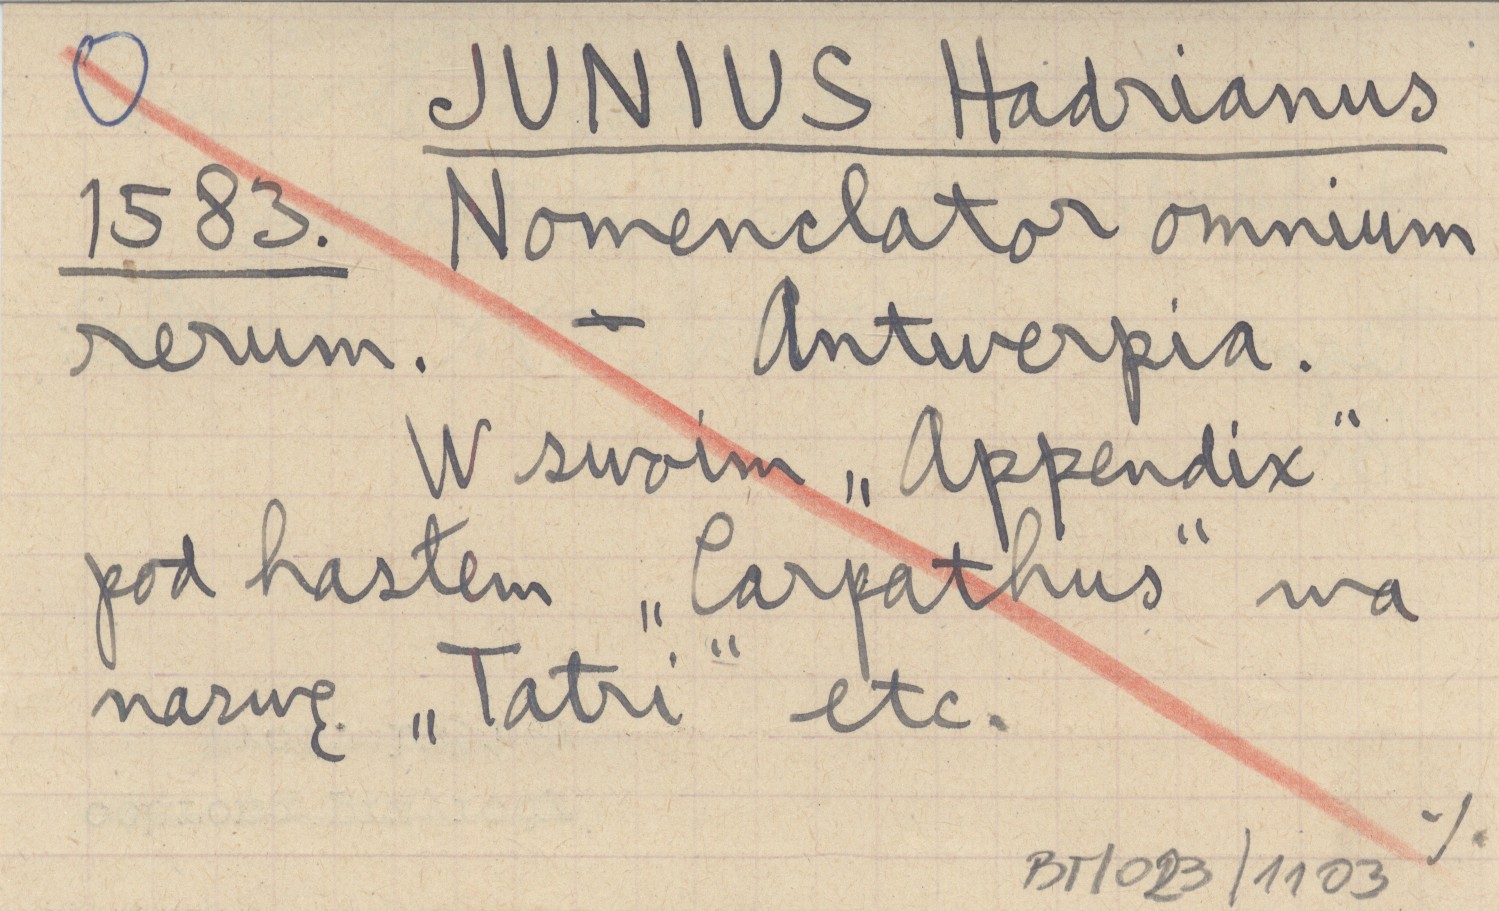 JUNIUS Hadrianus
1583. Nomenclator omnium
rerum. – Antwerpia.
W swoim „Appendix“
pod hasłem „Carpathus“ ma
nazwę „Tatri“ etc.
./.
BT/023/1103